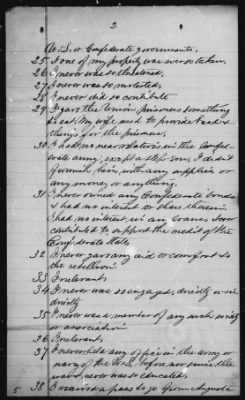 2
U.S. or Confederate governments.
25 None of my property was ever so taken.
26 I never was so threatened.
27 I never was so molested.
28 I never did so contribute
29 I gave the Union prisoners something
to eat. My wife used to provide
things for the prisoners.
30 I had no near relatives in the Confed-
erate army, except a step son, I didn't
furnish him with any supplies or
any money or anything.
31 I never owned any Confederate bonds
& had no interest or share therein.
I had no interest in any loans &
contributed to support the credit of the
Confederate State
32 I never gave any aid or comfort to
the rebellion.
33 Irrelevant
34 I never was so engaged, directly or in-
directly
35 I never was a member of any such society
or association
36 Irrelevant
37 I never held any office in the army or
navy of the U.S. before nor since the
war & never was so educated.
38 I received a pass to go from Augusta
5